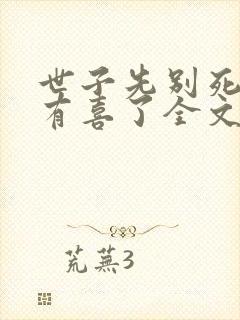 世子先别死
有喜了全文
荒芜3